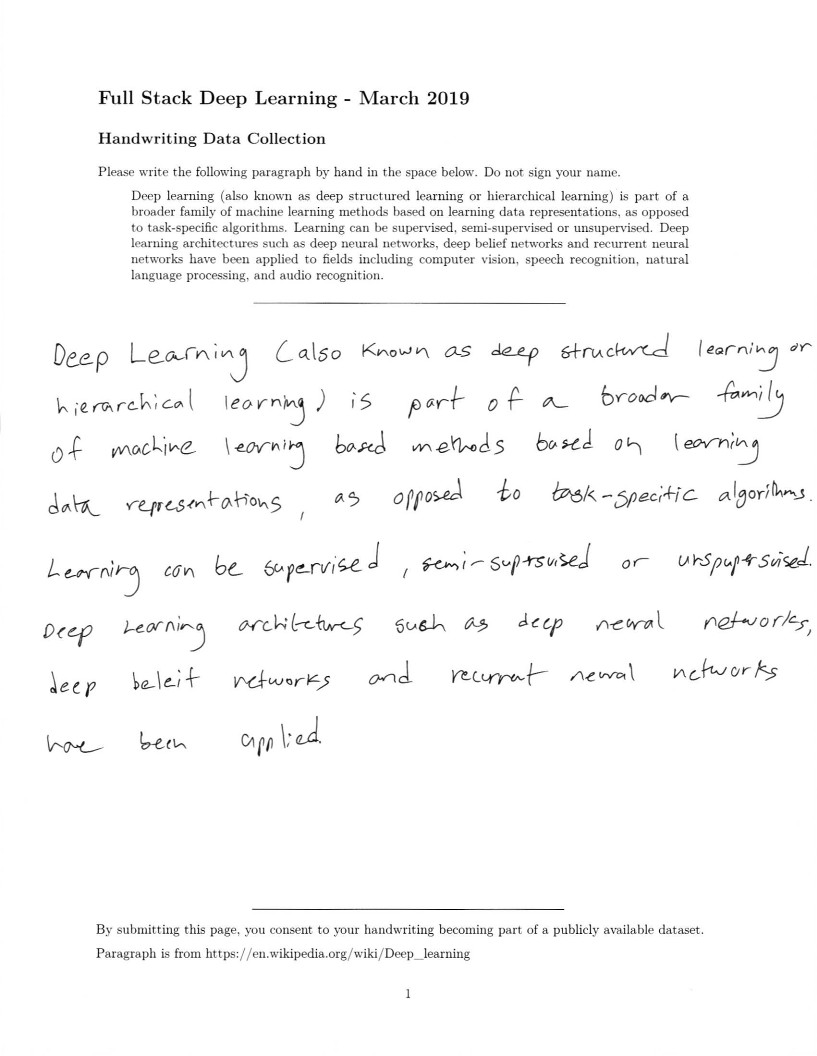 Full Stack Deep Learning - March 2019
Handwriting Data Collection
Please write the following paragraph by hand in the space below. Do not sign your name.
Deep learning (also known as deep structured learning or hierarchical learning) is part of a
broader family of machine learning methods based on learning data representations, as opposed
to task-specific algorithms. Learning can be supervised, semi-supervised or unsupervised. Deep
learning architectures such as deep neural networks, deep belief networks and recurrent neural
networks have been applied to fields including computer vision, speech recognition, natural
language processing, and audio recognition.
Deep Learning (also known as deep structured learning or
hierarchical learning) is part of a broader family
of machine learning based methods based on learning
data representations, as opposed to task-specific algorithms.
Learning can be supervised, semi-suprsvised or unspupersvised.
Deep Learning architctures such as deep neural networks,
deep beleif networks and recurrent neural networks
have been applied.
By submitting this page, you consent to your handwriting becoming part of a publicly available dataset.
Paragraph is from https://en.wikipedia.org/wiki/Deep_learning
1